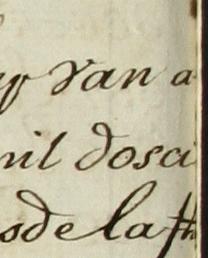 y van a
mil dosci
sde la fh